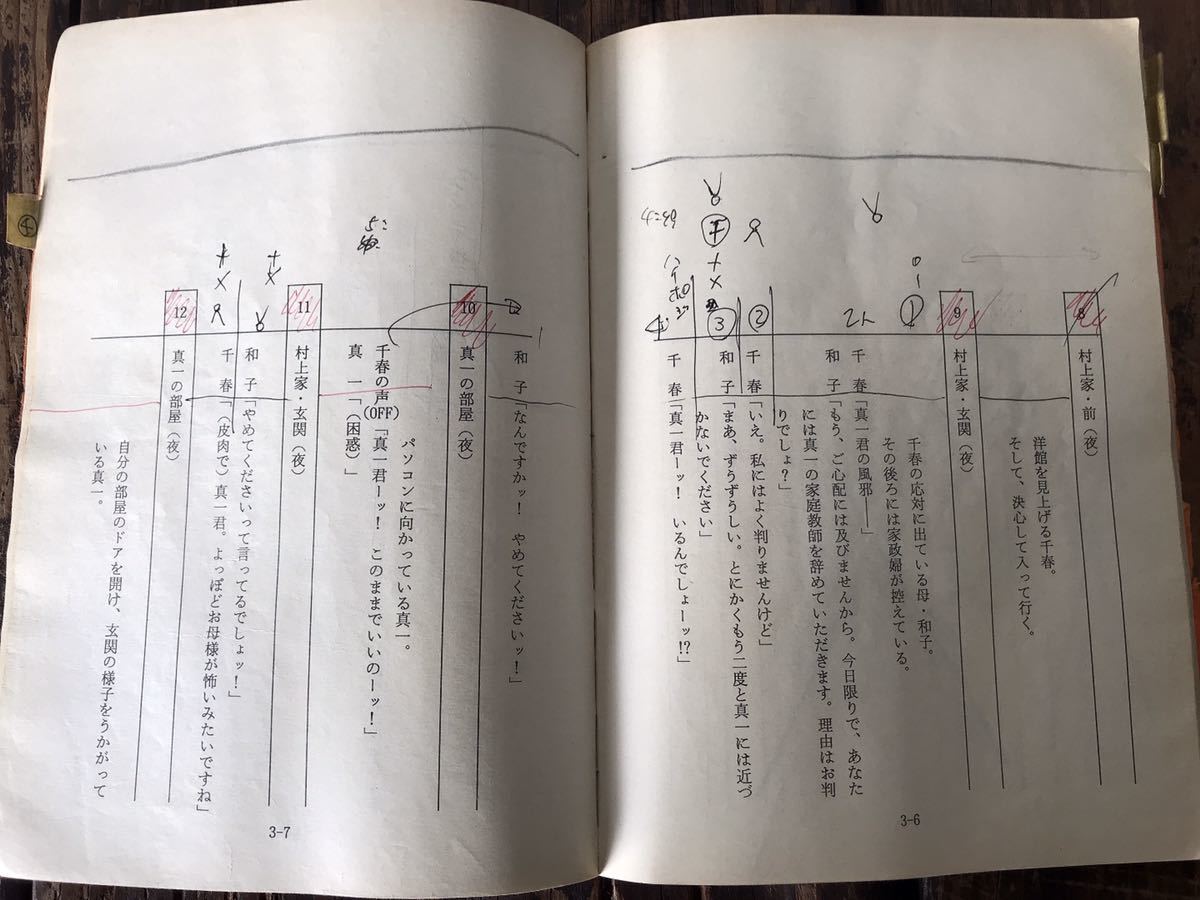 8
村上家・前（夜）
洋館を見上げる千春。
そして、決心して入って行く。
9
村上家・玄関（夜）
千春の応対に出ている母・和子。
その後ろには家政婦が控えている。
千　春「真一君の風邪――」
和　子「もう、ご心配には及びませんから。今日限りで、あなた
には真一の家庭教師を辞めていただきます。理由はお判
りでしょ？」
千　春「いえ。私にはよく判りませんけど」
和　子「まあ、ずうずうしい。とにかくもう二度と真一には近づ
かないでください」
千　春「真一君ーッ！　いるんでしょーッ!?」
①
②
③
ハイポジ
3-6
和　子「なんですかッ！　やめてくださいッ！」
10
真一の部屋（夜）
パソコンに向かっている真一。
千春の声(OFF)「真一君ーッ！　このままでいいのーッ！」
真　一「（困惑）」
11
村上家・玄関（夜）
和　子「やめてくださいって言ってるでしょッ！」
千　春「（皮肉で）真一君。よっぽどお母様が怖いみたいですね」
12
真一の部屋（夜）
自分の部屋のドアを開け、玄関の様子をうかがって
いる真一。
3-7
④